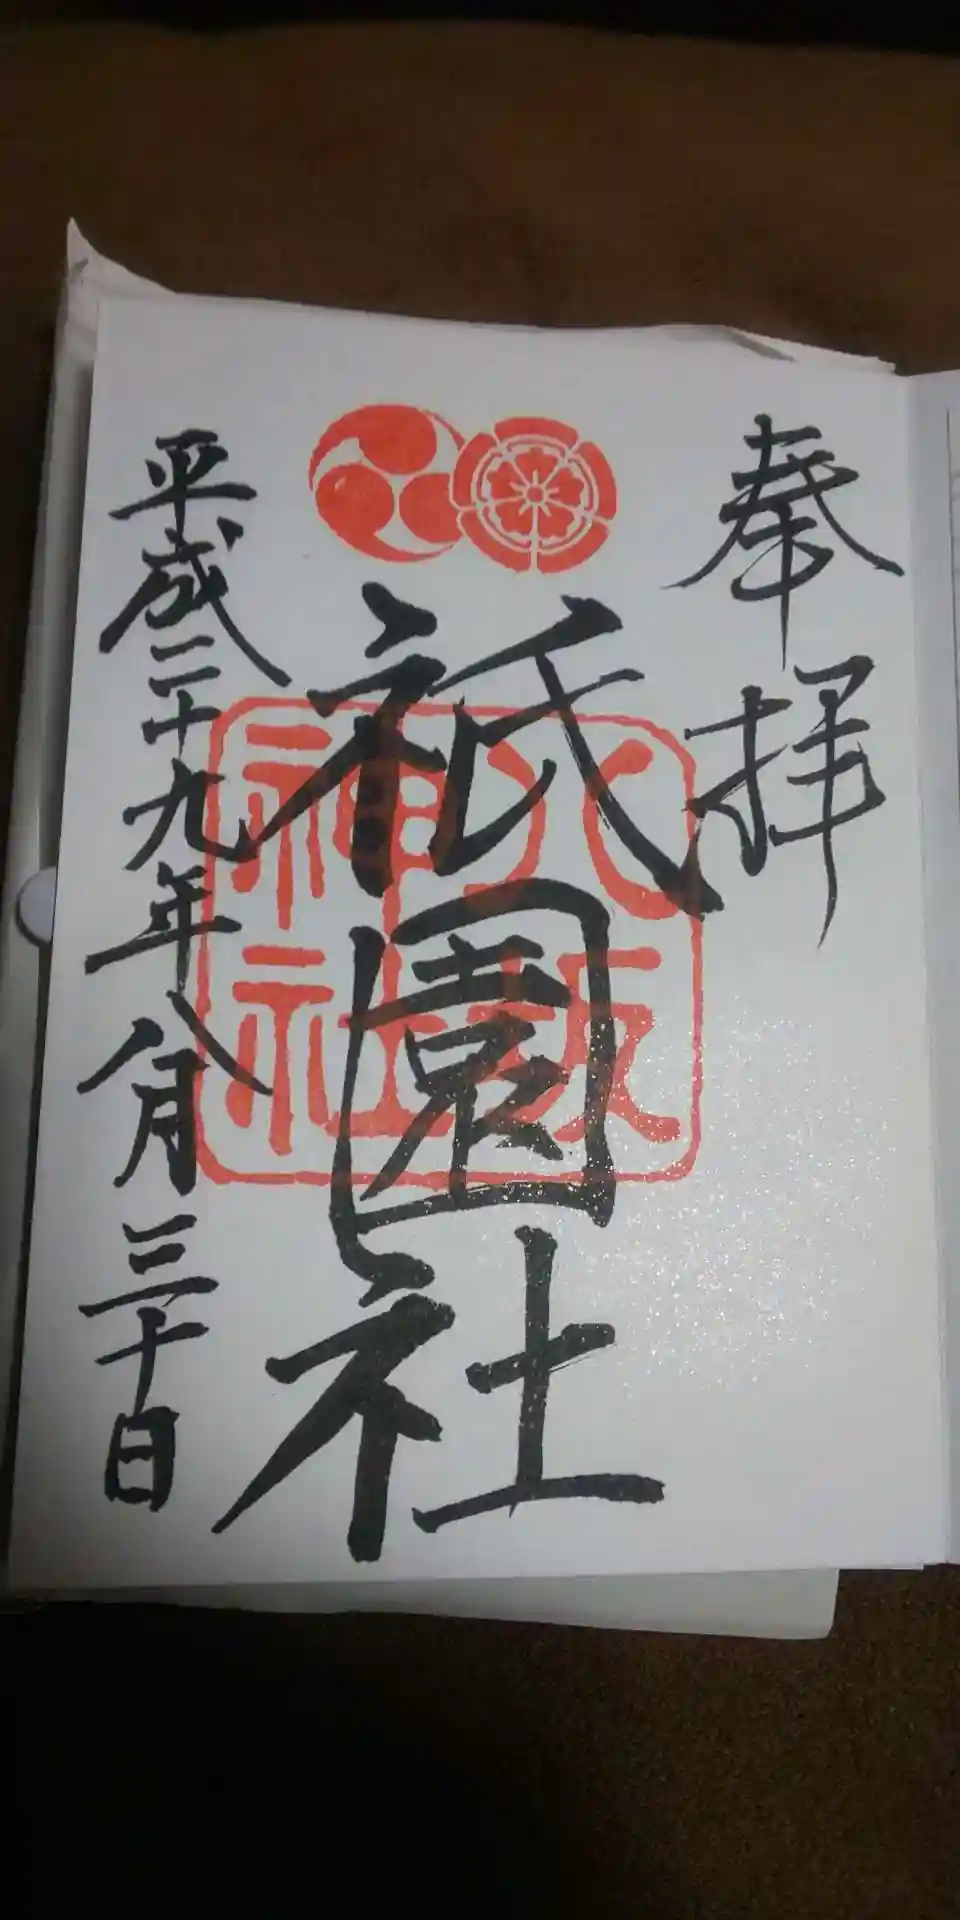 奉拝
祇園社
八坂神社
平成二十九年八月三十日